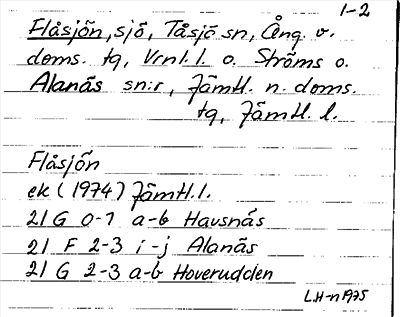 1-2
Flåsjön, sjö, Tåsjö sn, Ång. v.
doms. tq, Vrnl. l. o. Ströms o.
Alanäs sn:r, Jämtl. n. doms.
tq, Jämtl. l.
Flåsjön
ek (1974) Jämtl. l.
21 G 0-1 a-b Havsnäs
21 F 2-3 i-j Alanäs
21 G 2-3 a-b Hoverudden
LH-n 1975